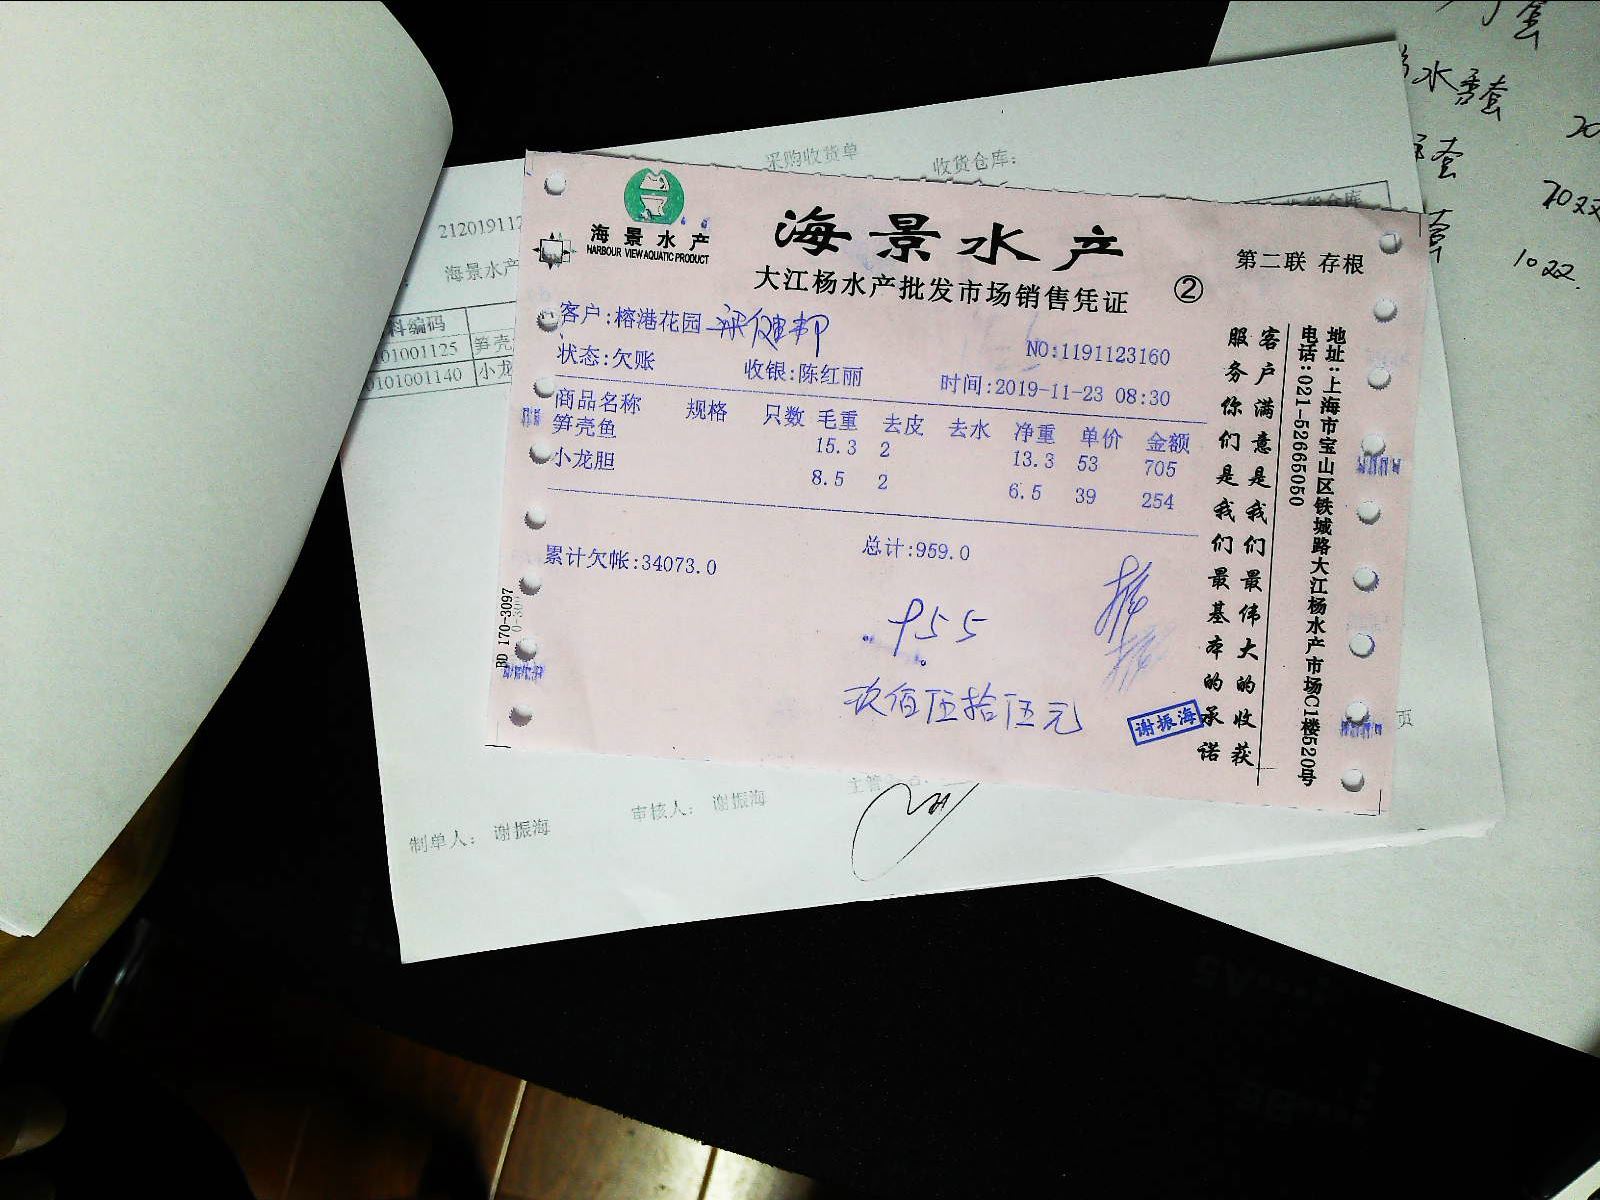 采购收货单
收货仓库：
212019112
海景水产
料编码
01001125 笋壳
0101001140 小龙
海景水产
HARBOUR VIEW AQUATIC PRODUCT
海景水产
大江杨水产批发市场销售凭证
②
第二联 存根
客户:榕港花园
NO:1191123160
状态:欠账 收银:陈红丽 时间:2019-11-23 08:30
商品名称 规格 只数 毛重 去皮 去水 净重 单价 金额
笋壳鱼 15.3 2 13.3 53 705
小龙胆 8.5 2 6.5 39 254
累计欠帐:34073.0 总计:959.0
955
玖佰伍拾伍元
谢振海
客户满意是我们最伟大的收获
服务你们是我们最基本的承诺
地址:上海市宝山区铁城路大江杨水产市场C1楼520号
电话:021-52665050
BD 170-3097
制单人： 谢振海
审核人： 谢振海
页
水
套
20
套
1022.